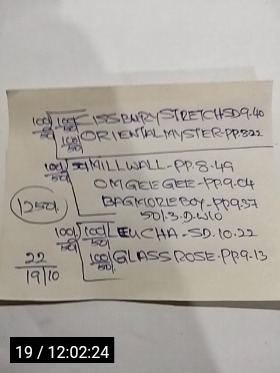 100/50 100/50 ISSBURY STRETCH SD 9.40
100/50 ORIENTAL MYSTER-P.P.8.22
100/50 MILLWALL-P.P.8.49
OMGEEGEE-P.P.9.04
BAGMOREBOY-P.P.9.37
1250/. SD/.3.D.W10
100/50 100/50 EUCHA-SD.10.22
100/50 GLASS ROSE-P.P.9.13
22
19/10
19 / 12:02:24